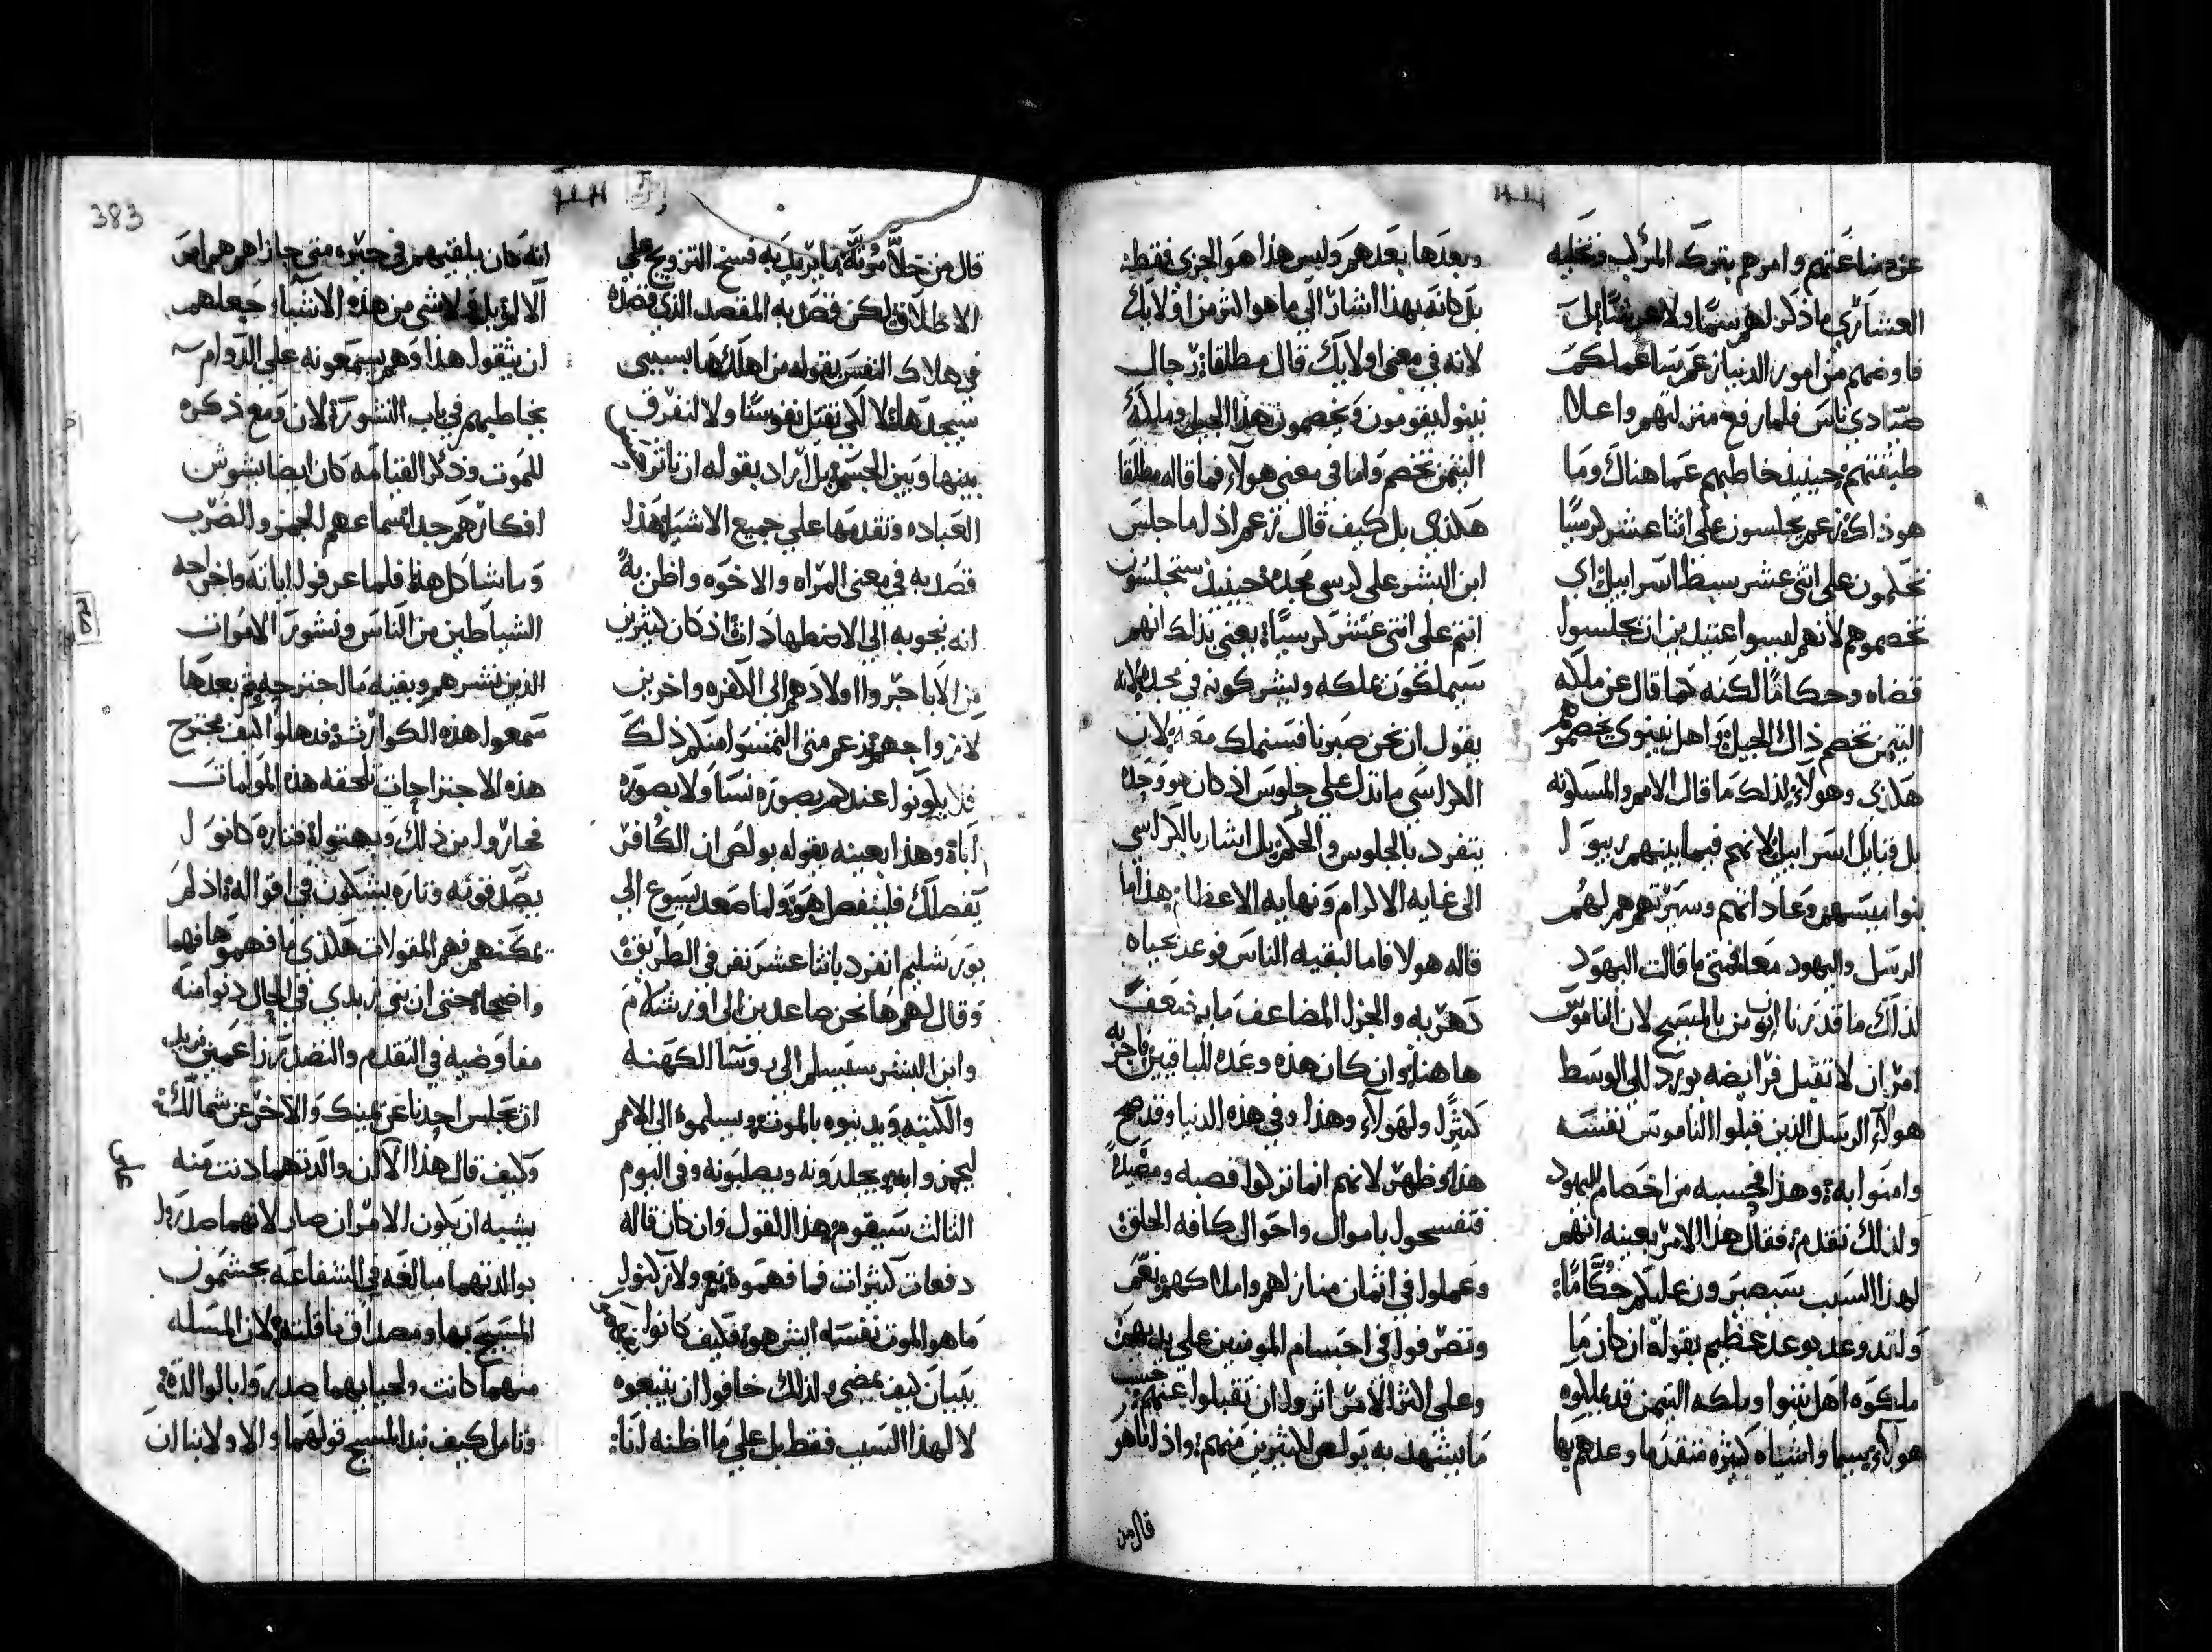 عن صناعتهم وامرهم بتركه المركب وتخليه
العشاري ماذكر لهم سما ولا عرشا بل
فاوضهم من امور الدنيا زعم سا عملكم
صيادي ناس فلما رفع منزلتهم واعلا
طبقتهم حينيذ خاطبهم عما هناك وما
هو ذاك زعم يجلسون على اثنا عشر كرسيا
تحكمون على اثني عشر سبط اسراييل اي
تخصموهم لانهم ليسوا عتيدين ان يجلسوا
قضاه وحكاما لكنه كما قال عن ملكه
التيمن تخصم ذاك الجيل واهل نينوى يخصموهم
هكذي وهولاء لذلك ما قال الامم والمسكونه
بل قبايل اسراييل لانهم فيما بينهم ربيو ا
بنوا ميسهم وعاداتهم وسيرتهم هم لهم
الرسل واليهود معا فمتى ما قالت اليهود
لذلك ما قدرنا ان نومن بالمسيح لان الناموس
امر ان لا تقبل فرايضه يورد الى الوسط
هولاء الرسل الذين قبلوا الناموس نفسه
وامنوا به وهذا فحسبه من اخصام لليهود
ولذلك تقدم فقال هذا الامر بعينه انهم
لهذا السبب سيصيرون عليكم حكاما
ولقد وعد بوعد عظيم بقوله ان كان ما
ملكوه اهل نينوا وملكه التيمن قد يملكوه
هولاء سيما واشياه كثيره متقدما وعدهم بها
وبعدها بعدهم وليس هذا هو الجزى فقط
بل كانه بهذا اشار الى ما هو اكثر من اولايك
لانه في معنى اولايك قال مطلقا رجال
نينوا يقومون ويخصمون هذا الجيل وملكه
التيمن تخصم واما في معنى هولاء فما قاله مطلقا
هكذى بل كيف قال زعم اذا ما جلس
ابن البشر على كرسي مجده حينيذ ستجلسون
انتم على اثني عشر كرسيا يعني بذلك انهم
سيملكون ملكه ويشركونه في مجده لانه
يقول ان نحن صبرنا فسنملك معه لان
الكراسي ما تدل على جلوس اذ كان هو وحده
يتفرد بالجلوس والحكم بل اشار بالكراسي
الى غايه الاكرام ونهايه الاعظام هذا ما
قاله هولا فاما لبقيه الناس فوعد بحياه
دهريه والجزا المضاعف مايه ضعف
هاهنا وان كان هذه وعده للباقيين فاجر به
كثيرا ولهولاء وهذا وفي هذه الدنيا وقد صح
هذا وظهر لانهم انما تركوا قصبه ومصيدا
فتفسحوا باموال واحوال كافه الخلق
وعملوا في اثمان منازلهم واملاكهم نعم
وتصرفوا في اجسام المومنين على يديهم
وعلى اكثر الامر اثروا ان تقبلوا عنهم حسب
ما يشهد به بولص لكثيرين منهم واذا ما هو
قال من
قال من خلا مونه ما يريد به فسخ التزويج على
الاطلاق لكن قصد به المقصد الذي قصده
في هلاك النفس بقوله من اهلكها بسببي
سيجدها لا لكي نقتل نفوسنا ولا لنفرق
بينها وبين الجسم بل اراد بقوله ان ياثر
العباده وتقدمها على جميع الاشيا هذا
قصد به في معنى المراه والاخوه واظن به
انه نحو به الى الاضطهادات اذ كان كثيرين
من الابا جروا اولادهم الى الكفره واخرين
لازواجهم زعم متى التمسوا منكم ذلك
فلا يكونوا عندكم بصوره نسا ولا بصوره
اباء وهذا بعينه يقوله بولص ان الكافر
يفصلك فلينفصل هو ولما صعد يسوع الى
يورشليم انفرد باثنا عشر نفر في الطريق
وقال لهم ها نحن صاعدين الى اورشلام
وابن البشر سيسلم الى روسا الكهنه
والكتبه ويدينوه بالموت ويسلموه الى الامم
ليهزوا به ويجلدونه ويصلبونه وفي اليوم
الثالث سيقوم هذا القول وان كان قاله
دفعات كثيرات فما فهموه نعم ولا ذكروا
ما هو الموت نفسه ايش هو فكيف كانوا
ببيان كيف يمضي ولذلك خافوا ان يتبعوه
لا لهذا السبب فقط بل على ما اظنه انا
انه كان يلقيهم في حيره متى جازاهم همامر
الا لم يل لاشي من هذه الاشياء جعلهم
ان يقول هذا وهم يسمعونه على الدوام
يخاطبهم في باب النشور لان ومع ذكره
للموت وذكر القيامه كان ايضا يشوش
افكارهم جدا اسماعهم الهمز والضرب
وما شاكل هذا فلما عرفوا اياته واخراجه
الشياطين من الناس ونشور الاموات
الذين نشرهم وبقيه مال جترجه ثم بعدها
سمعوا هذه الكوارث فدهلوا كيف مجترح
هذه الاجتراحات تلحقه هذه المولمات
فحاروا من ذلك وبهتوا فتاره كانو ا
يصدقونه وتاره يشكون في اقواله اذ لم
يمكنهم فهم المقولات هكذى ما فهموها فهما
واضحا حتى ان بني زبدي في الحال دنوا منه
مفاوضيه في التقدم والتصدر زاعمين نريد
ان تجلس احدنا عن يمينك والاخر عن شمالك
وكيف قال هذا الان والدتهما دنت منه
يشبه ان يكون الامران صار لانهما صدروا
بوالدتهما مبالغه في الشفاعه يحتشمون
المسيح بها ومصداق ما قلته لان المسله
منهما كانت ولحيايهما صدروا بالوالده
وتامل كيف نبدا المسيح قولهما والا ولابنا ان
383